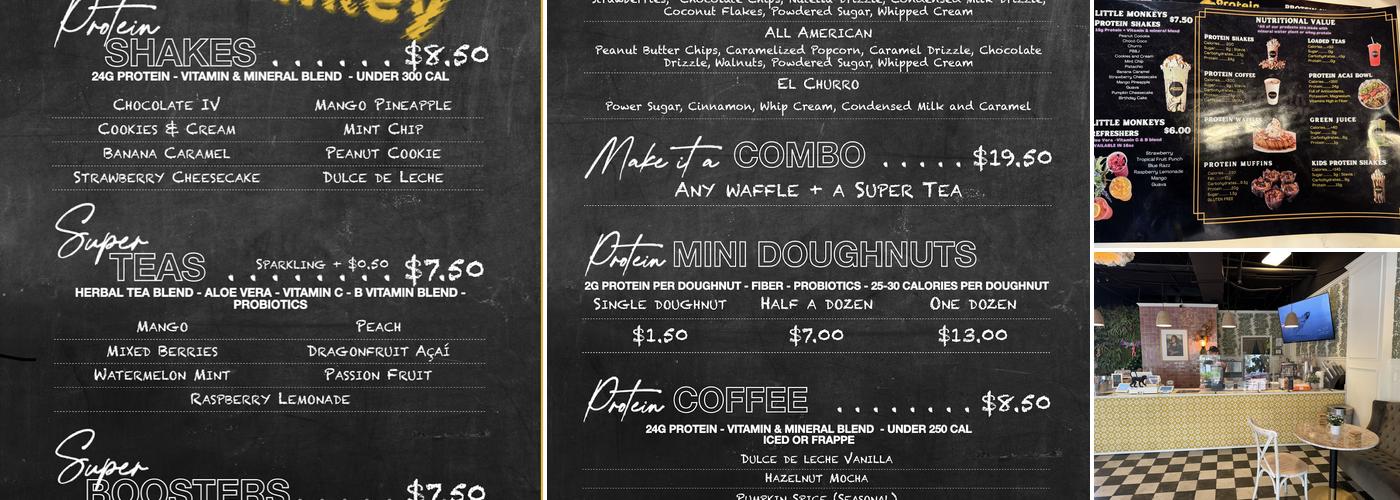 Protein
SHAKES . . . . . . $8.50
24G PROTEIN - VITAMIN & MINERAL BLEND - UNDER 300 CAL
CHOCOLATE IV
MANGO PINEAPPLE
COOKIES & CREAM
MINT CHIP
BANANA CARAMEL
PEANUT COOKIE
STRAWBERRY CHEESECAKE
DULCE DE LECHE
Super
TEAS . . . . . . . . $7.50
SPARKLING + $0.50
HERBAL TEA BLEND - ALOE VERA - VITAMIN C - B VITAMIN BLEND -
PROBIOTICS
MANGO
PEACH
MIXED BERRIES
DRAGONFRUIT AÇAÍ
WATERMELON MINT
PASSION FRUIT
RASPBERRY LEMONADE
Super
BOOSTERS $7.50
Strawberries, Chocolate Chips, Nutella Drizzle, Condensed Milk Drizzle,
Coconut Flakes, Powdered Sugar, Whipped Cream
ALL AMERICAN
Peanut Butter Chips, Caramelized Popcorn, Caramel Drizzle, Chocolate
Drizzle, Walnuts, Powdered Sugar, Whipped Cream
EL CHURRO
Power Sugar, Cinnamon, Whip Cream, Condensed Milk and Caramel
Make it a COMBO . . . . . $19.50
ANY WAFFLE + A SUPER TEA
Protein MINI DOUGHNUTS
2G PROTEIN PER DOUGHNUT - FIBER - PROBIOTICS - 25-30 CALORIES PER DOUGHNUT
SINGLE DOUGHNUT
HALF A DOZEN
ONE DOZEN
$1.50
$7.00
$13.00
Protein COFFEE . . . . . . . . $8.50
24G PROTEIN - VITAMIN & MINERAL BLEND - UNDER 250 CAL
ICED OR FRAPPE
DULCE DE LECHE VANILLA
HAZELNUT MOCHA
PUMPKIN SPICE (SEASONAL)
LITTLE MONKEYS
PROTEIN SHAKES $7.50
Peanut Cookie
Choco Coco
Churro
PB&J
Cookies and Cream
Mint Chip
Pistachio
Banana Caramel
Strawberry Cheesecake
Mango Pineapple
Guava
Pumpkin Cheesecake
Birthday Cake
LITTLE MONKEYS
REFRESHERS $6.00
Strawberry
Tropical Fruit Punch
Blue Razz
Raspberry Lemonade
Mango
Guava
NUTRITIONAL VALUE
PROTEIN SHAKES
LOADED TEAS
PROTEIN COFFEE
PROTEIN ACAI BOWL
PROTEIN WAFFLES
GREEN JUICE
PROTEIN MUFFINS
KIDS PROTEIN SHAKES
GLUTEN FREE